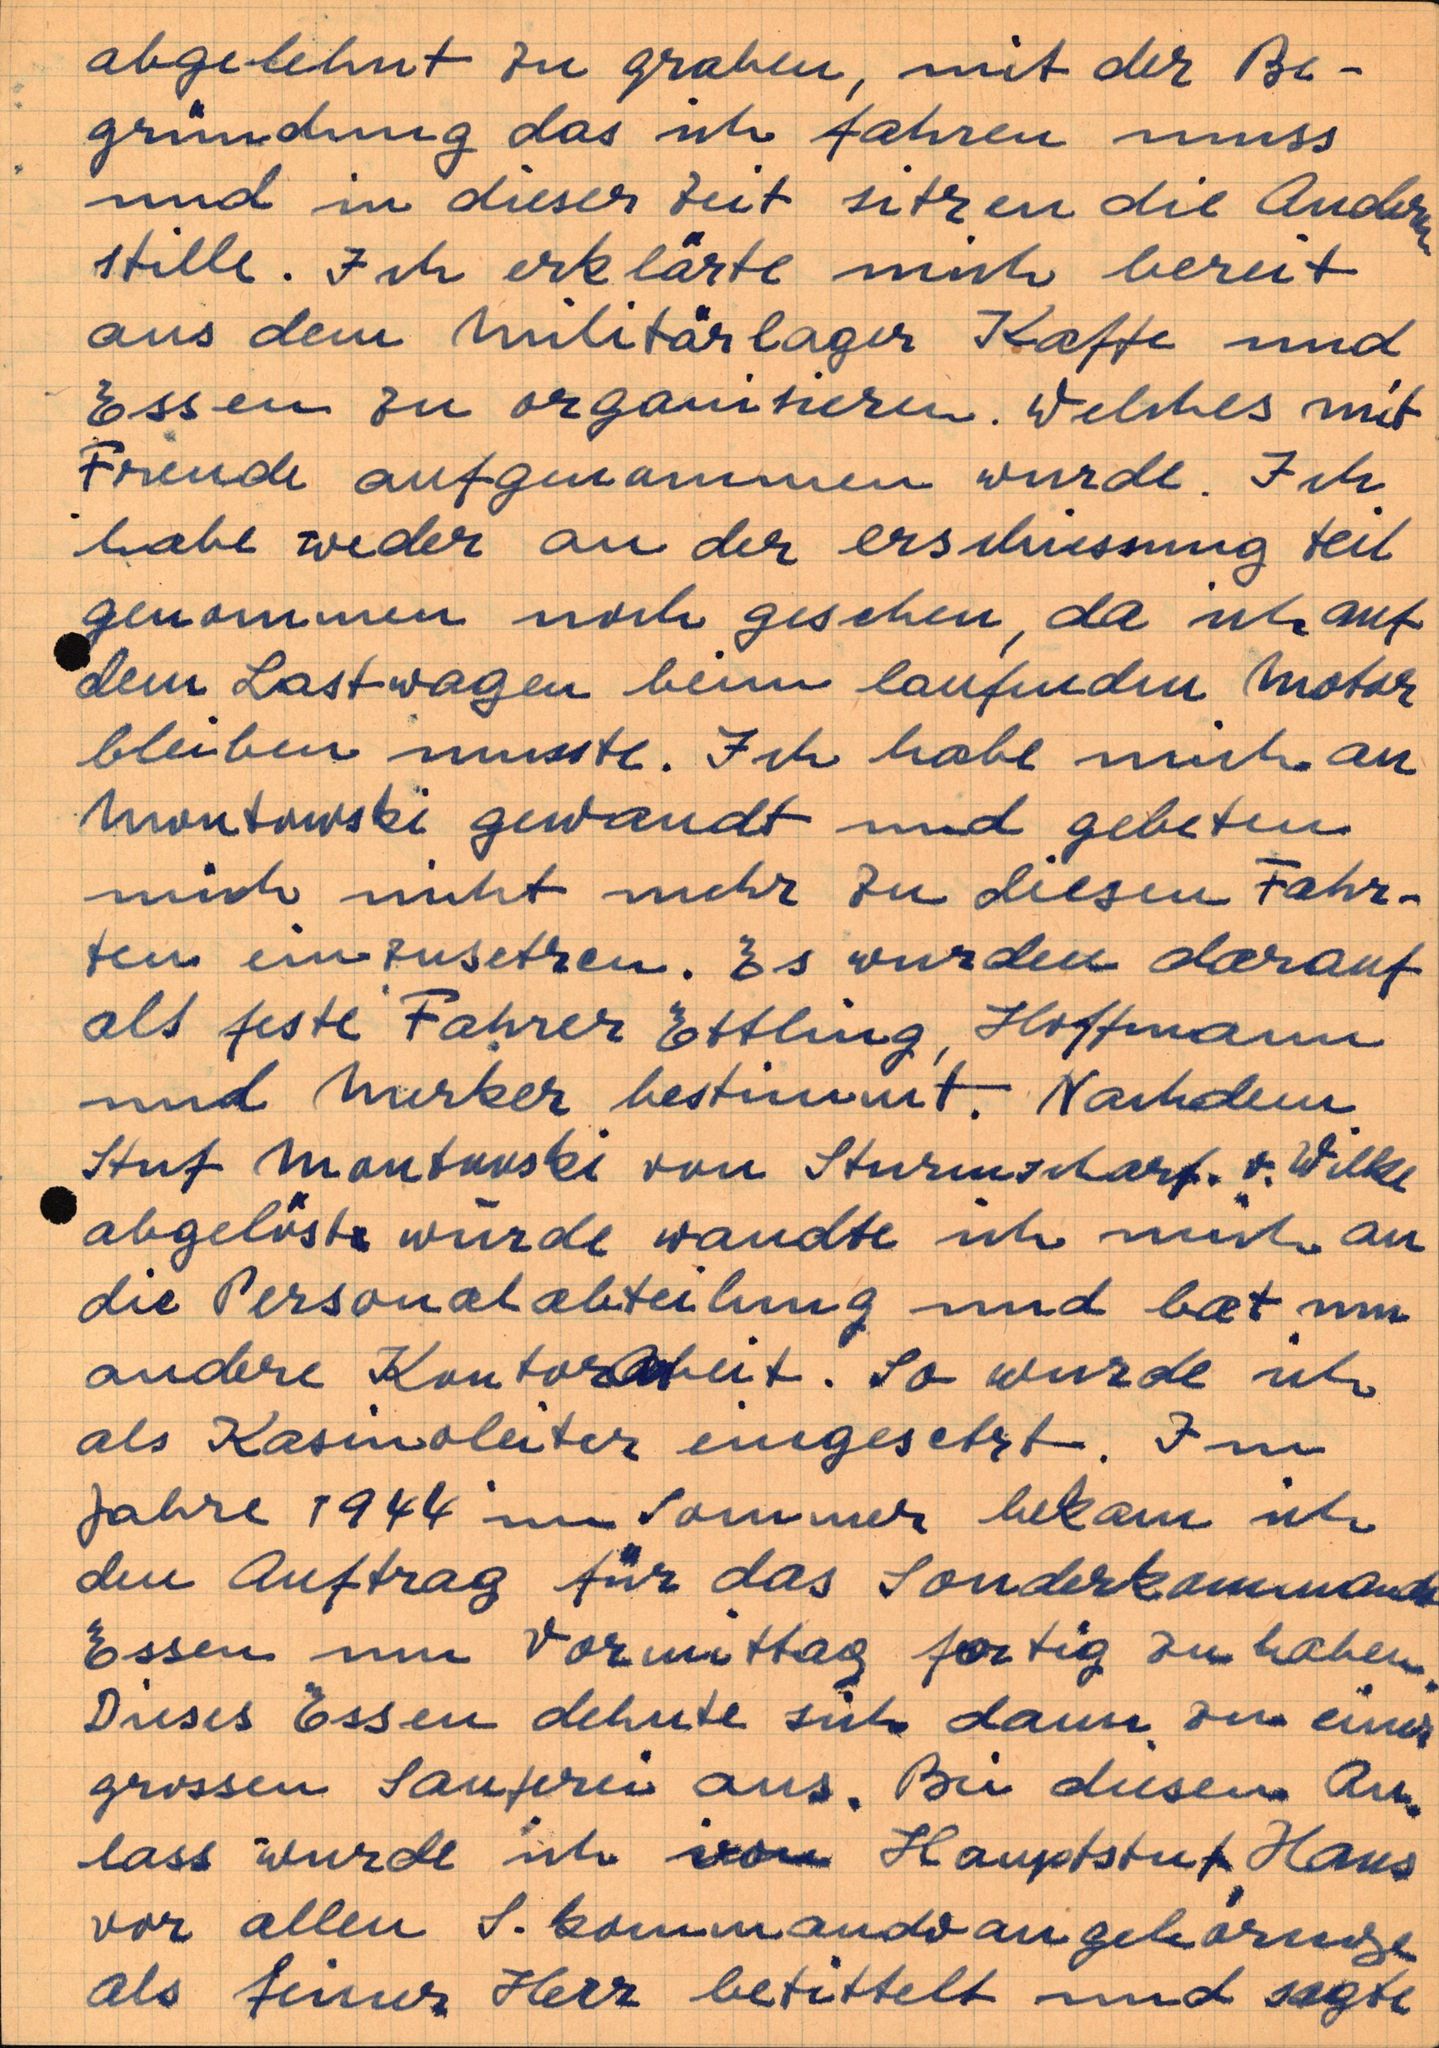 abgelehnt zu graben, mit der Be-
gründung das ich fahren muss
und in dieser Zeit sitzen die Andern
stille. Ich erklärte mich bereit
aus dem Militärlager Kaffe und
Essen zu organisieren. Welches mit
Freude aufgenommen wurde. Ich
habe weder an der erschiessung teil
genommen noch gesehen, da ich auf
dem Lastwagen beim laufenden Motor
bleiben musste. Ich habe mich an
Montowski gewandt und gebeten
mich nicht mehr zu diesen Fahr-
ten einzusetzen. Es wurden darauf
als feste Fahrer Ettling, Hoffmann
und Merker bestimmt. Nachdem
Stuf Montowski von Sturmscharf. v. Wilke
abgelöst würde wandte ich mich an
die Personalabteilung und bat um
andere Kontorarbeit. So wurde ich
als Kasinoleiter eingesetzt. Im
Jahre 1944 im Sommer bekam ich
den Auftrag für das Sonderkommando
Essen um Vormittag fertig zu haben.
Dieses Essen dehnte sich dann zu einer
grossen Sauferei aus. Bei diesem An-
lass wurde ich von Hauptstuf. Haus
vor allen S. kommandoangehörige
als feiner Herr betittelt und sagte